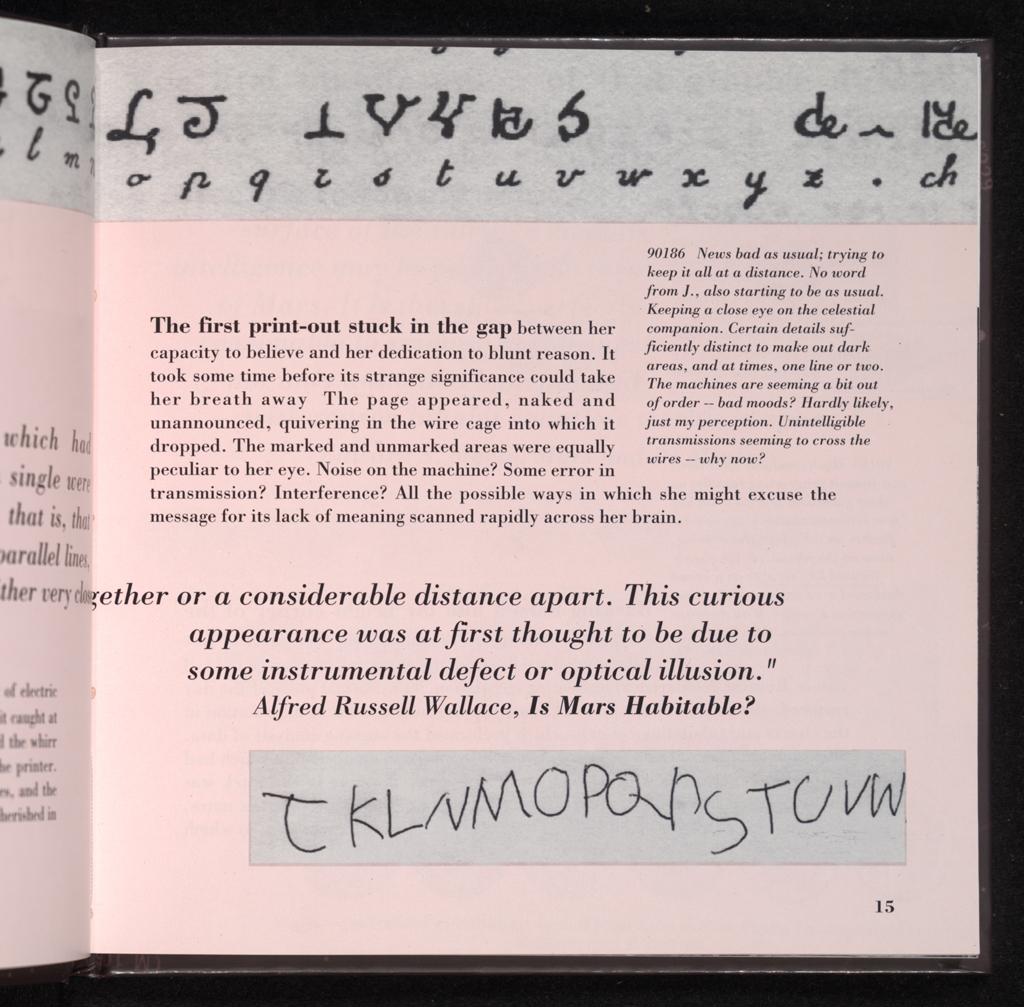 l m
o p q r s t u v w x y z . ch
90186 News bad as usual; trying to
keep it all at a distance. No word
from J., also starting to be as usual.
Keeping a close eye on the celestial
companion. Certain details suf-
ficiently distinct to make out dark
areas, and at times, one line or two.
The machines are seeming a bit out
of order -- bad moods? Hardly likely,
just my perception. Unintelligible
transmissions seeming to cross the
wires -- why now?
The first print-out stuck in the gap between her
capacity to believe and her dedication to blunt reason. It
took some time before its strange significance could take
her breath away The page appeared, naked and
unannounced, quivering in the wire cage into which it
dropped. The marked and unmarked areas were equally
peculiar to her eye. Noise on the machine? Some error in
transmission? Interference? All the possible ways in which she might excuse the
message for its lack of meaning scanned rapidly across her brain.
which had
single were
that is, that
parallel lines,
ther very clos
gether or a considerable distance apart. This curious
appearance was at first thought to be due to
some instrumental defect or optical illusion."
Alfred Russell Wallace, Is Mars Habitable?
of electric
it caught at
the whirr
he printer.
es, and the
herished in
T K L N M O P Q R S T U V W
15